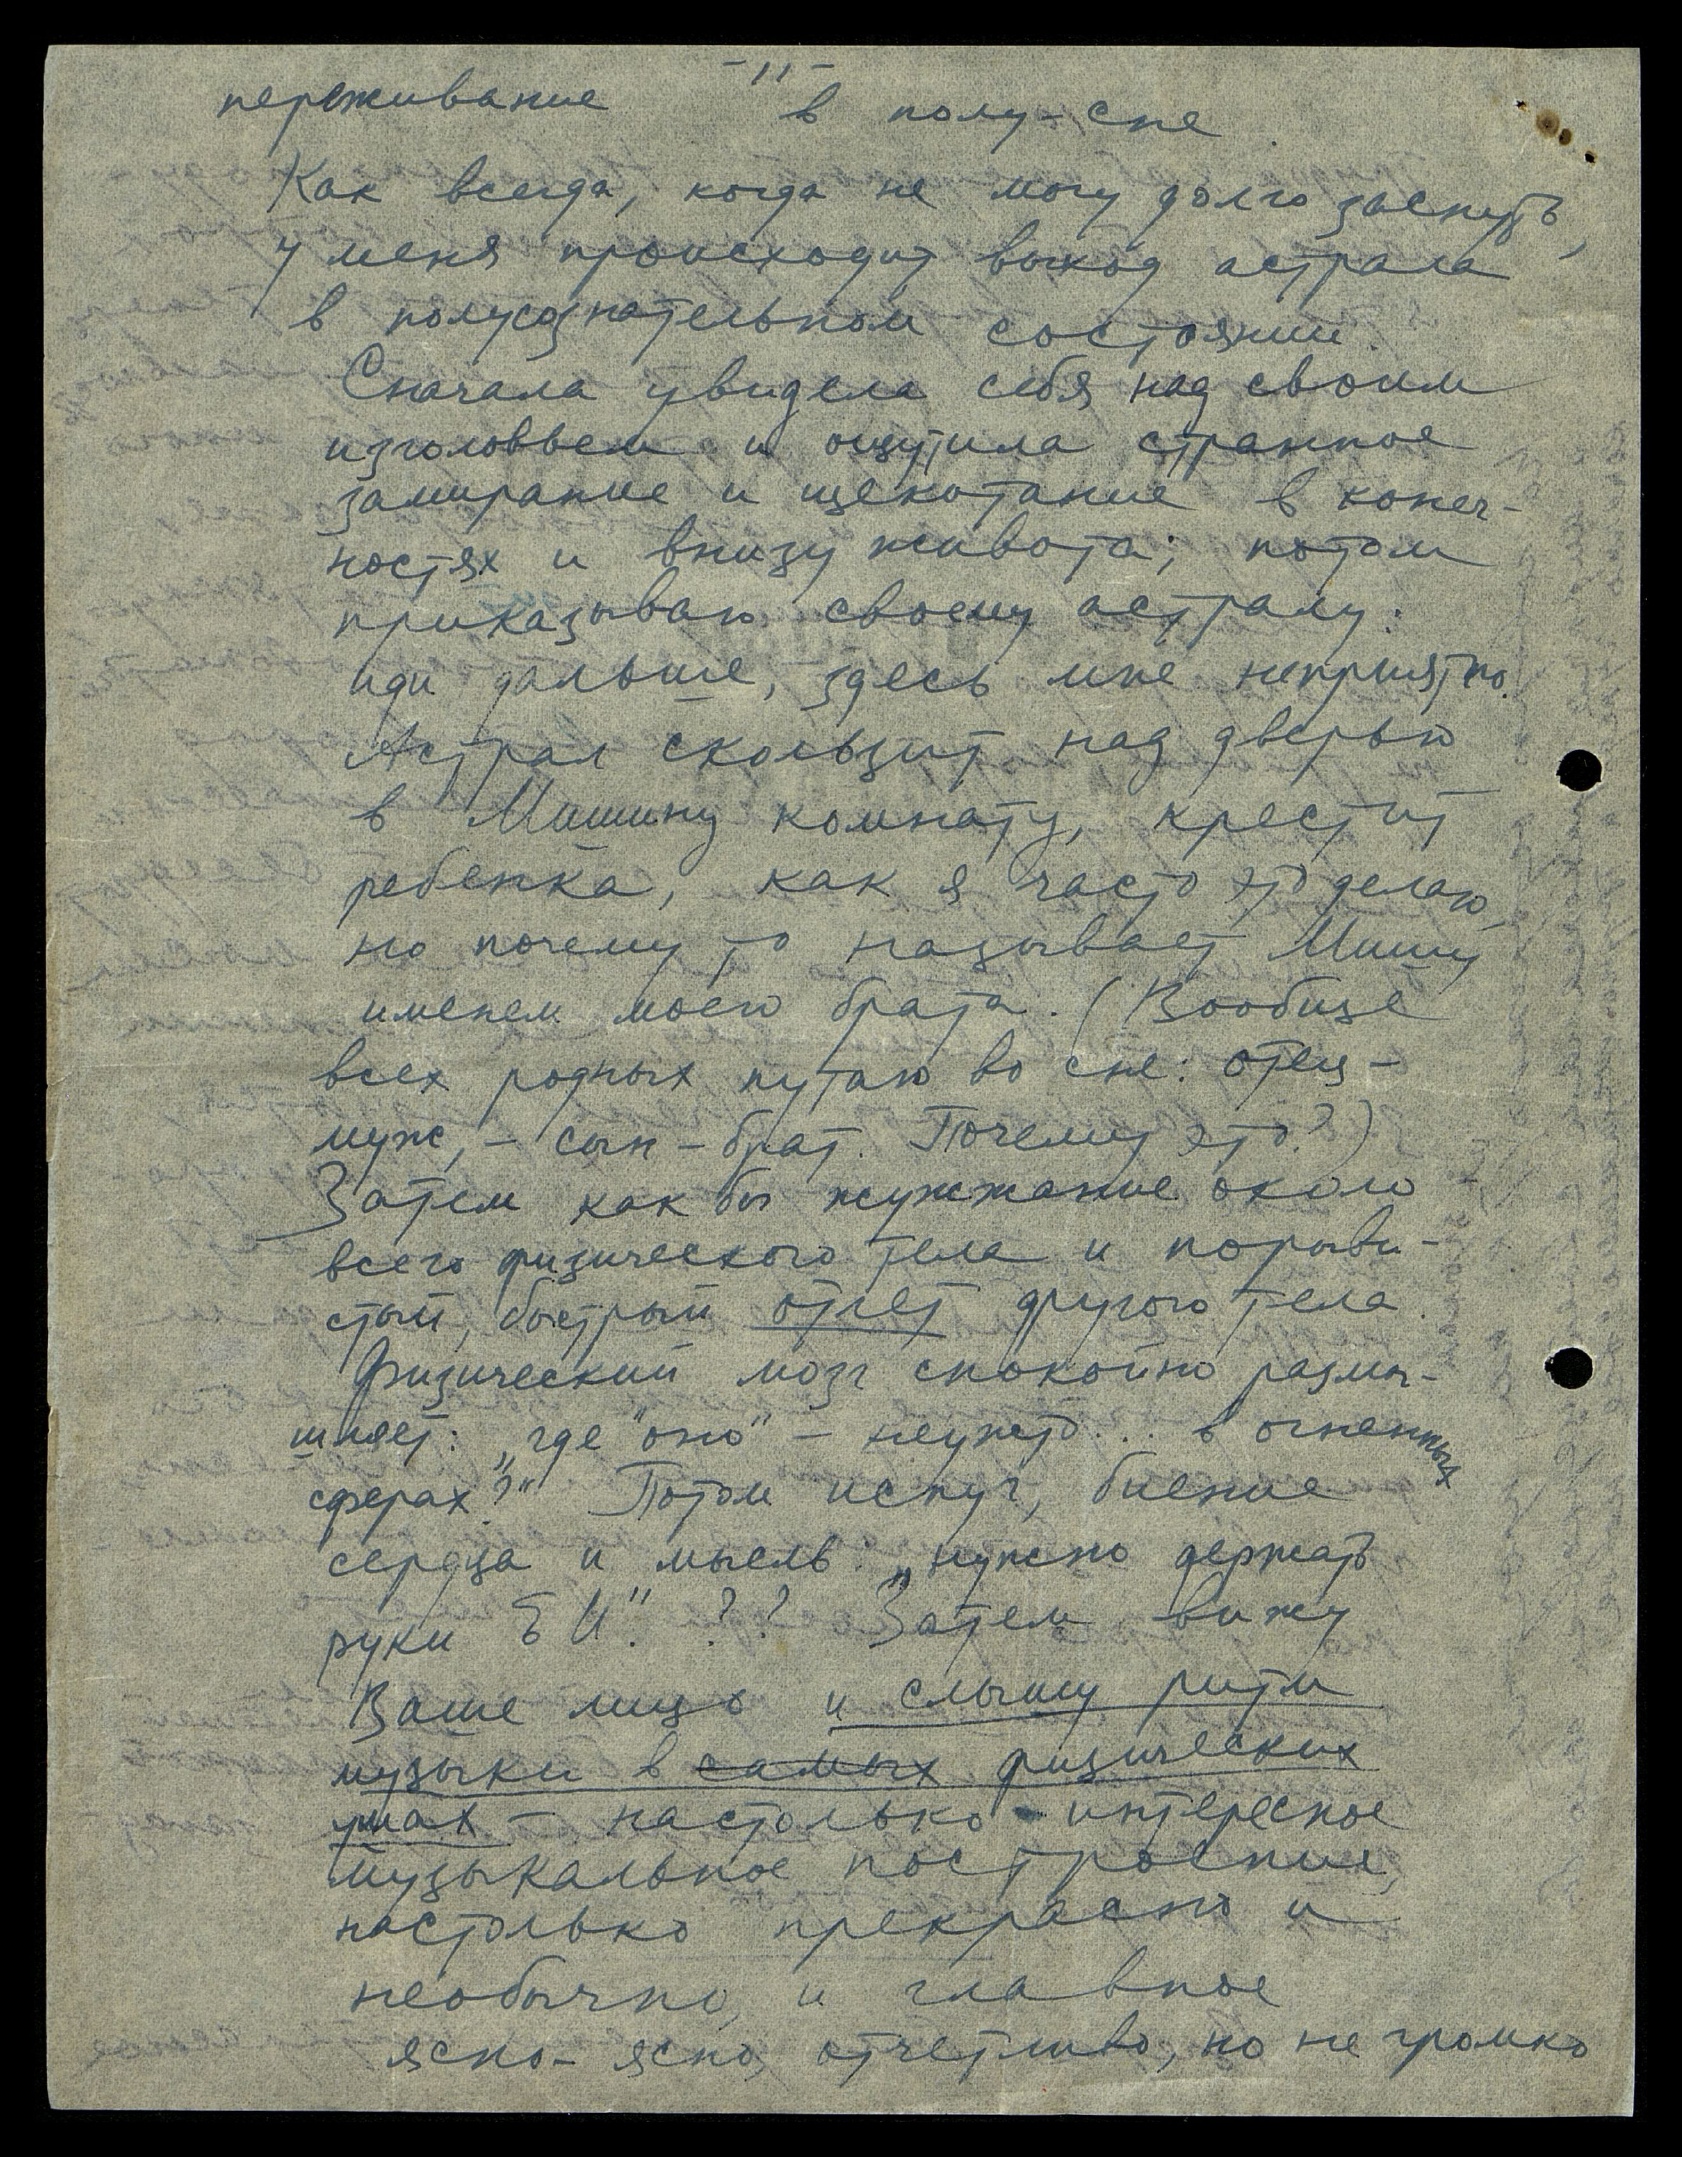 -"-
переживание в полу-сне
Как всегда, когда не могу долго заснуть,
у меня происходит выход астрала
в полусознательном состоянии.
Сначала увидела себя над своим
изголовьем и ощутила странное
замирание и щекотание в конеч-
ностях и внизу живота; потом
приказываю своему астралу:
иди дальше, здесь мне неприятно.
Астрал скользит над дверью
в Мишину комнату, крестит
ребенка, как я часто это делаю,
но почему то называет Мишу
именем моего брата. (Вообще
всех родных путаю во сне: отец-
муж, - сын - брат. Почему это?)
Затем как бы жужжание около
всего физического тела и порыви-
стый, быстрый отлет другого тела.
Физический мозг спокойно размы-
шляет: „где "оно" - неужто... в огненных
сферах?" Потом испуг, биение
сердца и мысль: „нужно держать
руки Е И". ?? Затем вижу
Ваше лицо и слышу ритм
музыки в самых физических
ушах - настолько интересное
музыкальное построение,
настолько прекрасно и
необычно, и главное
ясно-ясно, отчетливо, но не громко